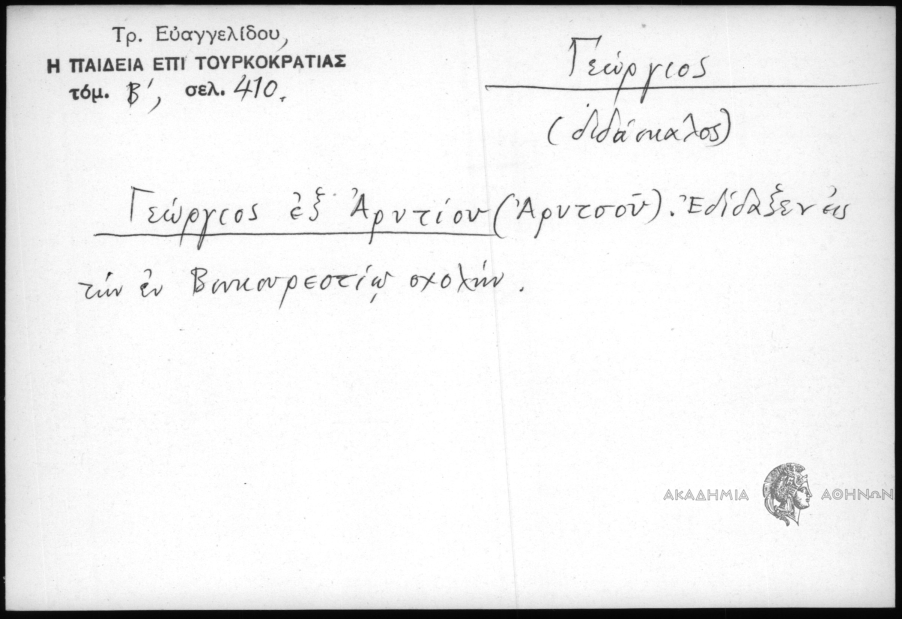 Τρ. Εὐαγγελίδου,
Η ΠΑΙΔΕΙΑ ΕΠΙ ΤΟΥΡΚΟΚΡΑΤΙΑΣ
τόμ. Β', σελ. 410.
Γεώργιος
(διδάσκαλος)
Γεώργιος ἐξ Ἀρυτίου (Ἀρυτσοῦ). Ἐδίδαξεν εἰς
τήν ἐν Βουκουρεστίῳ σχολήν.
ΑΚΑΔΗΜΙΑ ΑΘΗΝΩΝ